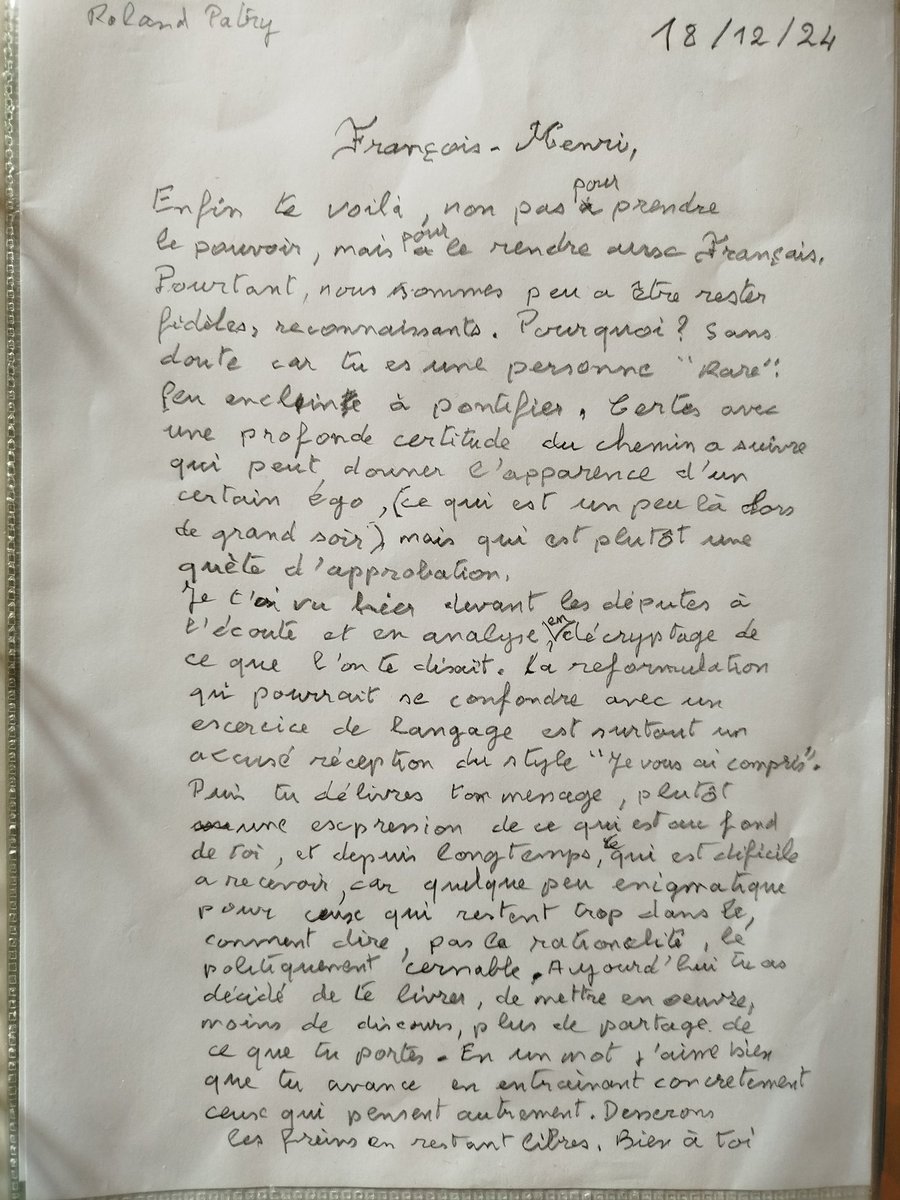 Roland Patry
18/12/24
François-Henri,
Enfin te voilà, non pas pour prendre
le pouvoir, mais pour le rendre aux Français.
Pourtant, nous sommes peu a être rester
fidèles, reconnaissants. Pourquoi ? Sans
doute car tu es une personne "Rare".
Peu encleint à pontifier. Certes avec
une profonde certitude du chemin a suivre
qui peut donner l'apparence d'un
certain égo, (ce qui est un peu là lors
de grand soir) mais qui est plutôt une
quête d'approbation.
Je t'ai vu hier devant les députes à
l'écoute et en analyse, en décryptage de
ce que l'on te disait. La reformulation
qui pourrait se confondre avec un
exercice de langage est surtout un
accusé réception du style "Je vous ai compris".
Puis tu délivres ton message, plutôt
une expression de ce qui est au fond
de toi, et depuis longtemps, ce qui est dificile
a recevoir, car quelque peu enigmatique
pour ceux qui restent trop dans le,
comment dire, pas la rationalité, le
politiquement cernable. Aujourd'hui tu as
décidé de te livrer, de mettre en oeuvre,
moins de discours, plus de partage de
ce que tu portes. En un mot j'aime bien
que tu avance en entrainant concretement
ceux qui pensent autrement. Desserons
les freins en restant libres. Bien à toi